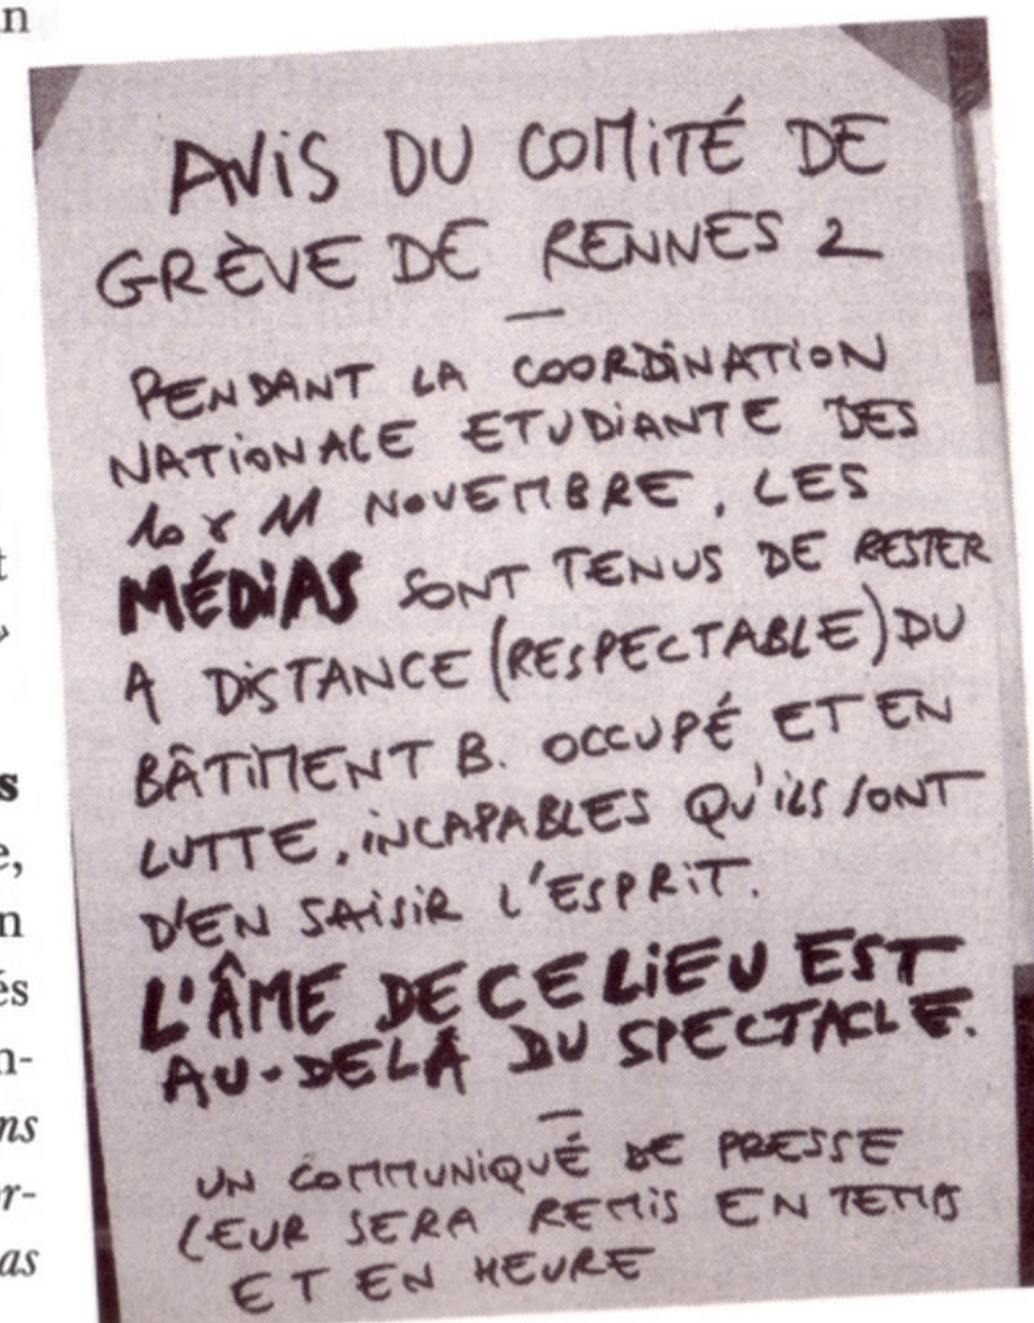 n
AViS DU COMiTÉ DE
GRÈVE DE RENNES 2
—
PENDANT LA COORDiNATiON
NATiONALE ETUDiANTE DES
10 & 11 NOVEMBRE, LES
MÉDiAS SONT TENUS DE RESTER
A DiSTANCE (RESPECTABLE) DU
BÂTiMENT B. OCCUPÉ ET EN
LUTTE, iNCAPABLES QU'iLS SONT
D'EN SAiSiR L'ESPRiT.
L'ÂME DE CE LiEU EST
AU-DELÀ DU SPECTACLE.
—
UN COMMUNiQUÉ DE PRESSE
LEUR SERA REMiS EN TEMPS
ET EN HEURE
t
»
s
e,
n
és
n-
ns
r-
as